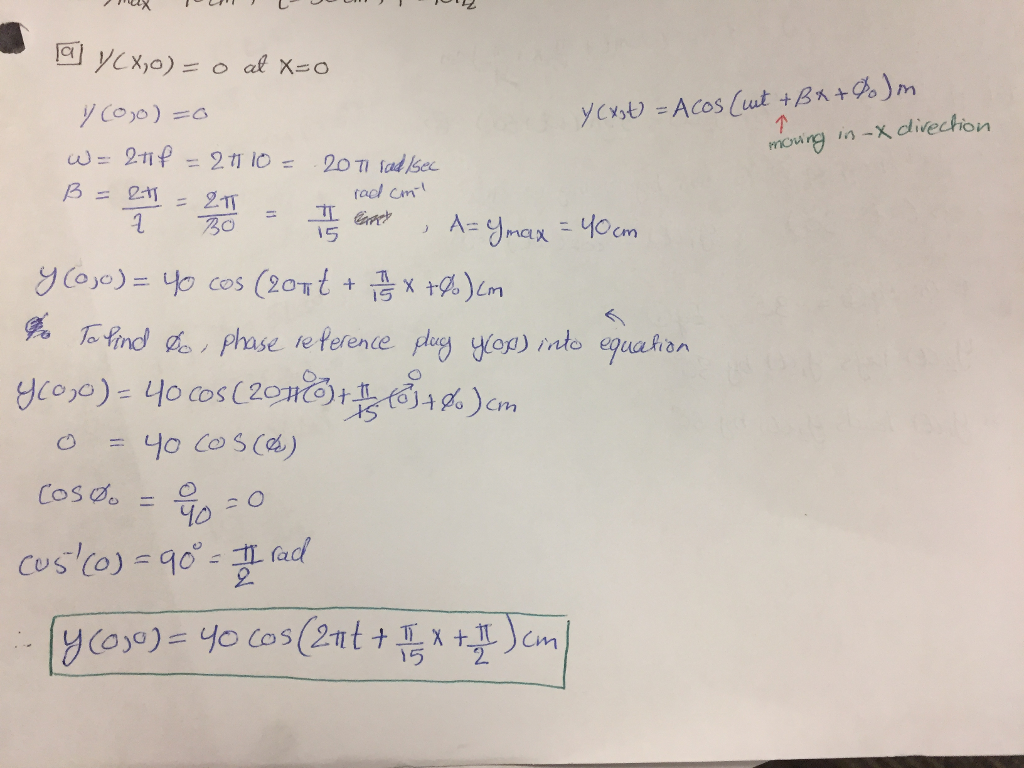 a y(x,0) = 0 at x=0
y(0,0) = 0
y(x,t) = A cos (ωt + βx + Ø₀) m
↑
moving in -x direction
ω = 2πf = 2π 10 = 20π rad/sec
β = 2π/λ = 2π/30 = π/15 rad cm⁻¹, A = ymax = 40 cm
y(0,0) = 40 cos (20πt + π/15 x + Ø₀) cm
To find Ø₀, phase reference plug y(0,0) into equation
y(0,0) = 40 cos (20π(0) + π/15 (0) + Ø₀) cm
0 = 40 cos(Ø)
cos Ø₀ = 0/40 = 0
cos⁻¹(0) = 90° = π/2 rad
∴ y(0,0) = 40 cos (2πt + π/15 x + π/2) cm